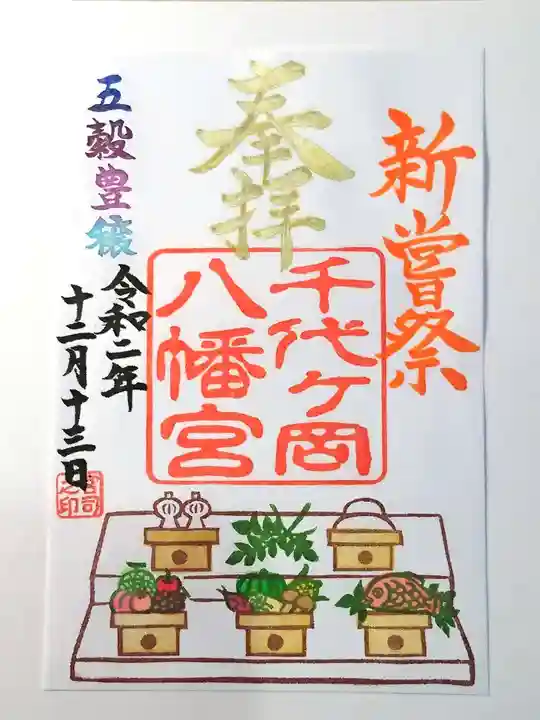 新嘗祭
奉拝
千代ヶ岡
八幡宮
五穀豊穣
令和二年
十二月十三日
宮司
之印